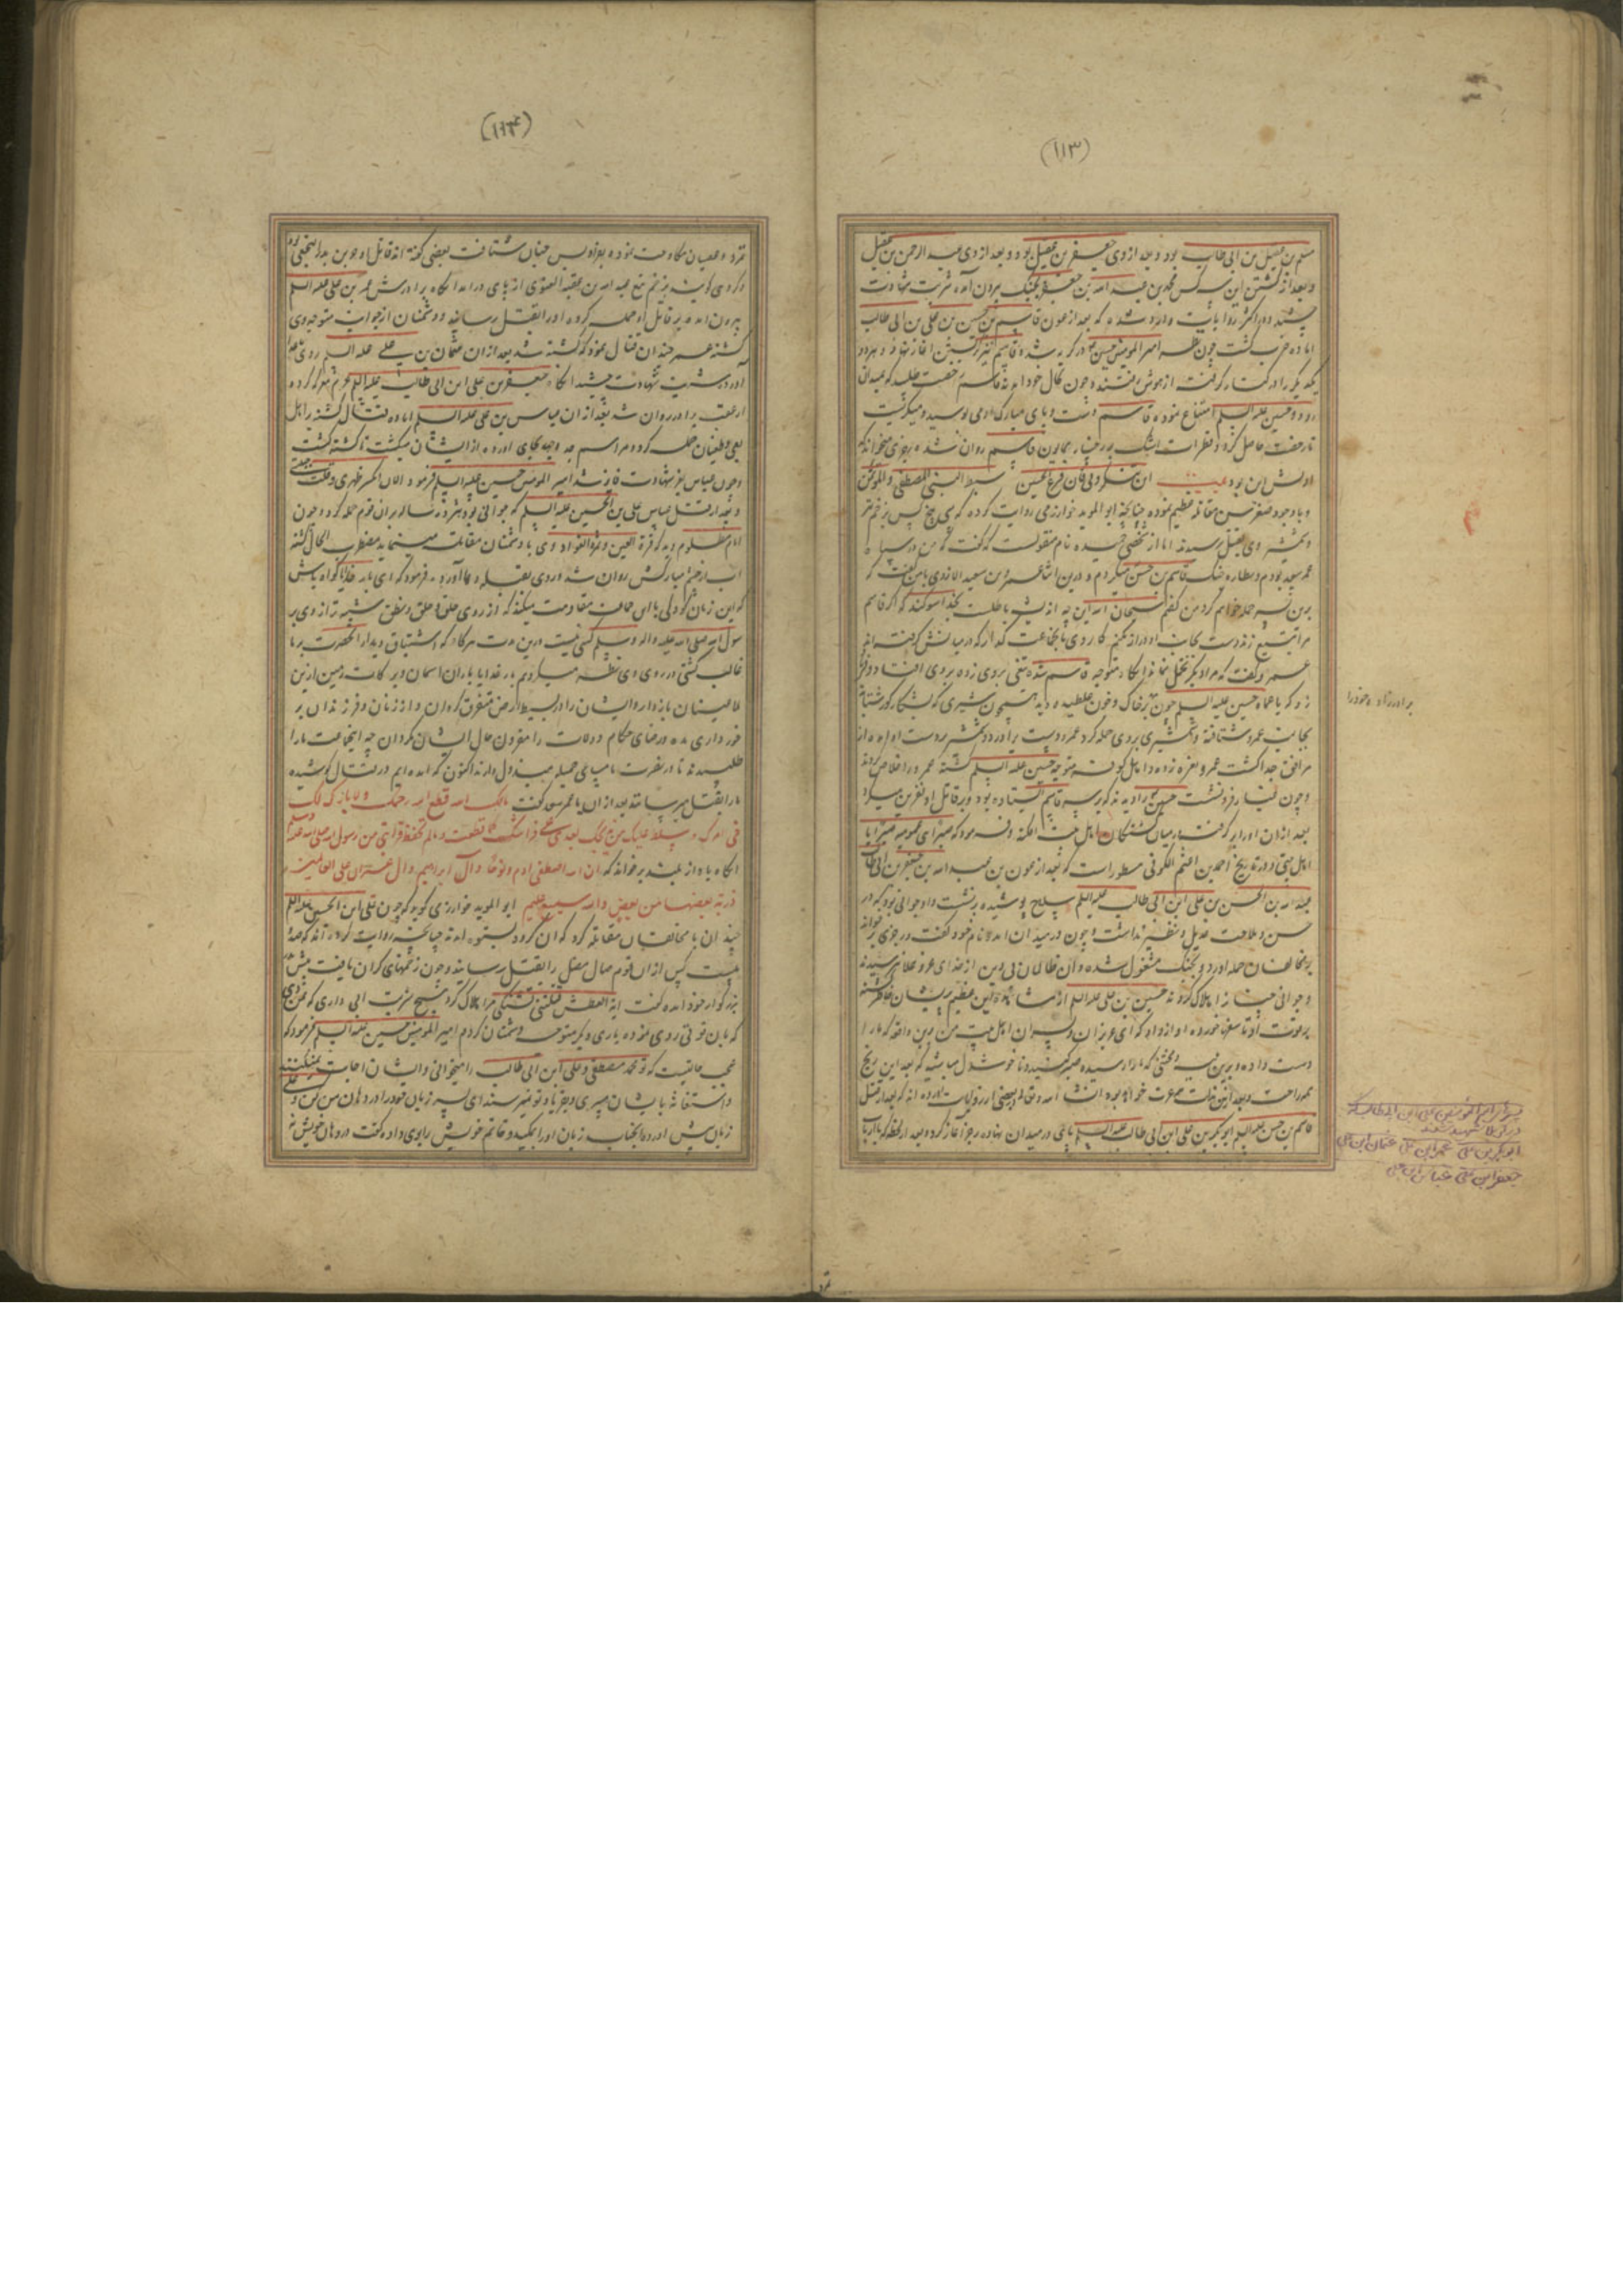 (۱۱۳)
مسلم بن عقیل بن ابی طالب بود و بعد از وی جعفر بن عقیل بود و بعد از وی عبد الرحمن بن عقیل
و بعد از کشتن این سه کس محمد بن عبد الله بن جعفر بجنک بیرون آمده شربت شهادت
چشید و در اکثر روایات وارد شده که بعد از عون قاسم بن حسن بن علی بن ابی طالب
اماده حرب کشت چون نظر امیر المومنین حسین بر
یکدیکر را در کنار کرفتند از هوش رفتند و چون بحال خود امدند قاسم رخصت طلبید که بمیدان
رود و حسین علیه السلم امتناع نموده قاسم دست و پای مبارک او می بوسید و میکریست
تا رخصت حاصل کرد و قطرات اشک بر رخسار همایون قاسم روان شده رجزی میخواند که
اولش این بود بیت ان تنکرونی فان فرع الحسین سبط النبی المصطفی و الموتمن
و با وجود صغر سن مقاتله عظیم نموده چنانچه ابو الموید خوارزمی روایت کرده که سی و پنج کس بزخم تیر
و شمشیر وی بقتل رسیدند اما از شخصی حمیده نام منقولست که کفت که من در سپاه
عمر سعد بودم و نظاره جنک قاسم بن حسن میکردم و درین اثنا عمرو بن سعید الازدی با من کفت که
برین پسر حمله خواهم کرد من کفتم سبحان الله این چه اندیشه باطلست بخدا سوکند که اکر قاسم
مرا تیغ زند دست بجانب او دراز نکنم کار وی باین جماعت کذار که در میانش کرفته اند
عمرو کفت که مرا دیکر تحمل نماند انکاه متوجه قاسم شده تیغی بروی زده بروی افتاد و فریاد
زد که یا عماه حسین علیه السلم چون بر خاک و خون غلطیده دید همچون شیری که بشکار کور شتابد
بجانب عمرو شتافته و شمشیری بروی حمله کرد عمرو دست را در دو شمشیر بر دست او امده از
مرافق جدا کشت عمرو نعره زده و اهل کوفه متوجه حسین علیه السلم کشته عمرو را خلاص کردند
و چون غبار فرو نشست حسین را دیدند که بر سر قاسم ایستاده بود و بر قاتل او نفرین میکرد
بعد از ان او را بر کرفت و در میان کشتکان اهل بیت افکند و فرمود که صبرا ای عمومیه صبرا یا
اهل بیتی و در تاریخ احمد بن اعثم الکوفی مسطور است که بعد از عون بن عبد الله بن جعفر بن ابی طالب
عبد الله بن الحسن بن علی ابن ابی طالب علیه السلم سلاح پوشیده بر نشست و او جوانی بود که در
حسن و ملاحت عدیل و نظیر نداشت و چون در میدان امد و نام خود کفت و رجزی بر خواند
بر مخالفان حمله اورد و بجنک مشغول شده و ان ظالمان بی دین از خدای عز و علا نترسیدند
و جوانی چنان را هلاک کردند حسین بن علی علیه السلم از مشاهده این عظیم پریشان خاطر کشته
بر فوت او تاسفها خورده او از داد که ای عزیزان و پسران اهل بیت من برین واقعه که ما را
دست داده و برین سختی که ما را رسیده صبر کنید و ناخوشدل مباشید که بعد این رنج
همه راحت و بعد ازین مذلت همه عزت خواهد بود انشا الله و تعالی و در بعضی از روایات وارده انه که بعد از قتل
قاسم بن حسن علیه السلم ابو بکر بن علی ابن ابی طالب علیه السلم پای در میدان نهاده رجز آغاز کرده بعد از لحظه که با ارباب
برادر زاده خود را
پسران امیر المومنین علی ابن ابی طالب که
در کربلا شهید شدند
ابو بکر بن علی عمر ابن علی عثمان ابن علی
جعفر ابن علی عباس ابن علی
تمرد
(۱۱۴)
تمرد و عصیان مقاومت نموده بفرادیس جنان شتافت بعضی کفته اند قاتل او جر بن بدر النخعی بود
و کروهی کویند بزخم تیغ عبد الله بن عقبه الغنوی از پای درامد انکاه برادرش عمر بن علی علیه السلم
بیرون امده بر قاتل او حمله کرده او را بقتل رسانید و دشمنان از جوانب متوجه وی
کشته عمر چندان قتال نمود که کشته شد بعد از ان عثمان بن علی علیه السلم روی
آورد شربت شهادت چشید انکاه جعفر بن علی ابن ابی طالب علیه السلم عزم معرکه کرده
از عقب برادر روان شد بعد از ان عباس بن علی علیه السلم اماده قتال کشته بر اهل
بغی و طغیان حمله کرد و مراسم جد و جهد بجای اورده از ایشان میکشت تا کشته کشت
و چون عباس بعز شهادت فایز شد امیر المومنین حسین علیه السلم فرمود الان انکسر ظهری و قلت حیلتی
و بعد از قتل عباس علی بن الحسین علیه السلم که جوانی بود هژده ساله بران قوم حمله کرد و چون
امام مظلوم دید که قرة العین و ثمرة الفواد وی با دشمنان مقاتلت مینماید مضطرب الحال کشته
اب از چشم مبارکش روان شد و روی بقبله دعا آورده فرمود که ای بار خدایا کواه باش
که این زمان کودکی با این جماعت مقاومت میکند که از روی خلق و خلق و نطق شبیه تر از وی بر
سول الله صلی الله علیه و اله و سلم کسی نیست و درین مدت هرکاه که اشتیاق دیدار آنحضرت بر ما
غالب کشتی در روی وی نظر میکردیم بار خدایا باران اسمان و برکات زمین ازین
ظالمینان باز دار و ایشان را در بسیط ارض متفرق کردان و از زنان و فرزندان بر
خورداری مده و رضای حکام و ولات را مقرون حال ایشان مکردان چه اینجماعت ما را
طلبیدند تا در نصرت ما مساعی جمیله مبذول دارند اکنون که امده ایم در قتال کوشیده
ما را بقتل میرسانند بعد از ان با عمر سعد کفت مالک الله قطع الله رحمک و لا بارک لک
فی امرک و سلط علیک من یذبحک بعدی علی فراشک کما قطعت رحمی و لم تحفظ قرابتی من رسول الله صلی الله علیه و سلم
انکاه باواز بلند بر خواند که ان الله اصطفی ادم و نوحا و آل ابراهیم و ال عمران علی العالمین
ذریة بعضها من بعض و الله سمیع علیم ابو الموید خوارزمی کوید که چون علی ابن الحسین علیه السلم
چندان با مخالفان مقاتله کرد که ان کروه بستوه امدند چنانچه روایت کرده اند که صد و
بیست کس از ان قوم ضال مضل را بقتل رسانید و چون زخمهای کران یافت پیش
بزرکوار خود امده کفت یا ابه العطش قتلنی تشنکی مرا هلاک کرد هیچ شربت ابی داری که بمن دهی
که بان قوتی روی نموده باری دیکر متوجه دشمنان کردم امیر المومنین حسین علیه السلم فرمود که
عجب حالتیست که تو محمد مصطفی و علی ابن ابی طالب را میخوانی و ایشان اجابت نمیکنند
و استغاثه بایشان میبری و بفریاد تو نمیرسند ای پسر زبان خود را در دهان من کن و علی
زبان پیش اورده انجناب زبان او را بمکید و خاتم خویش را بوی داده کفت در دهان خویش نه